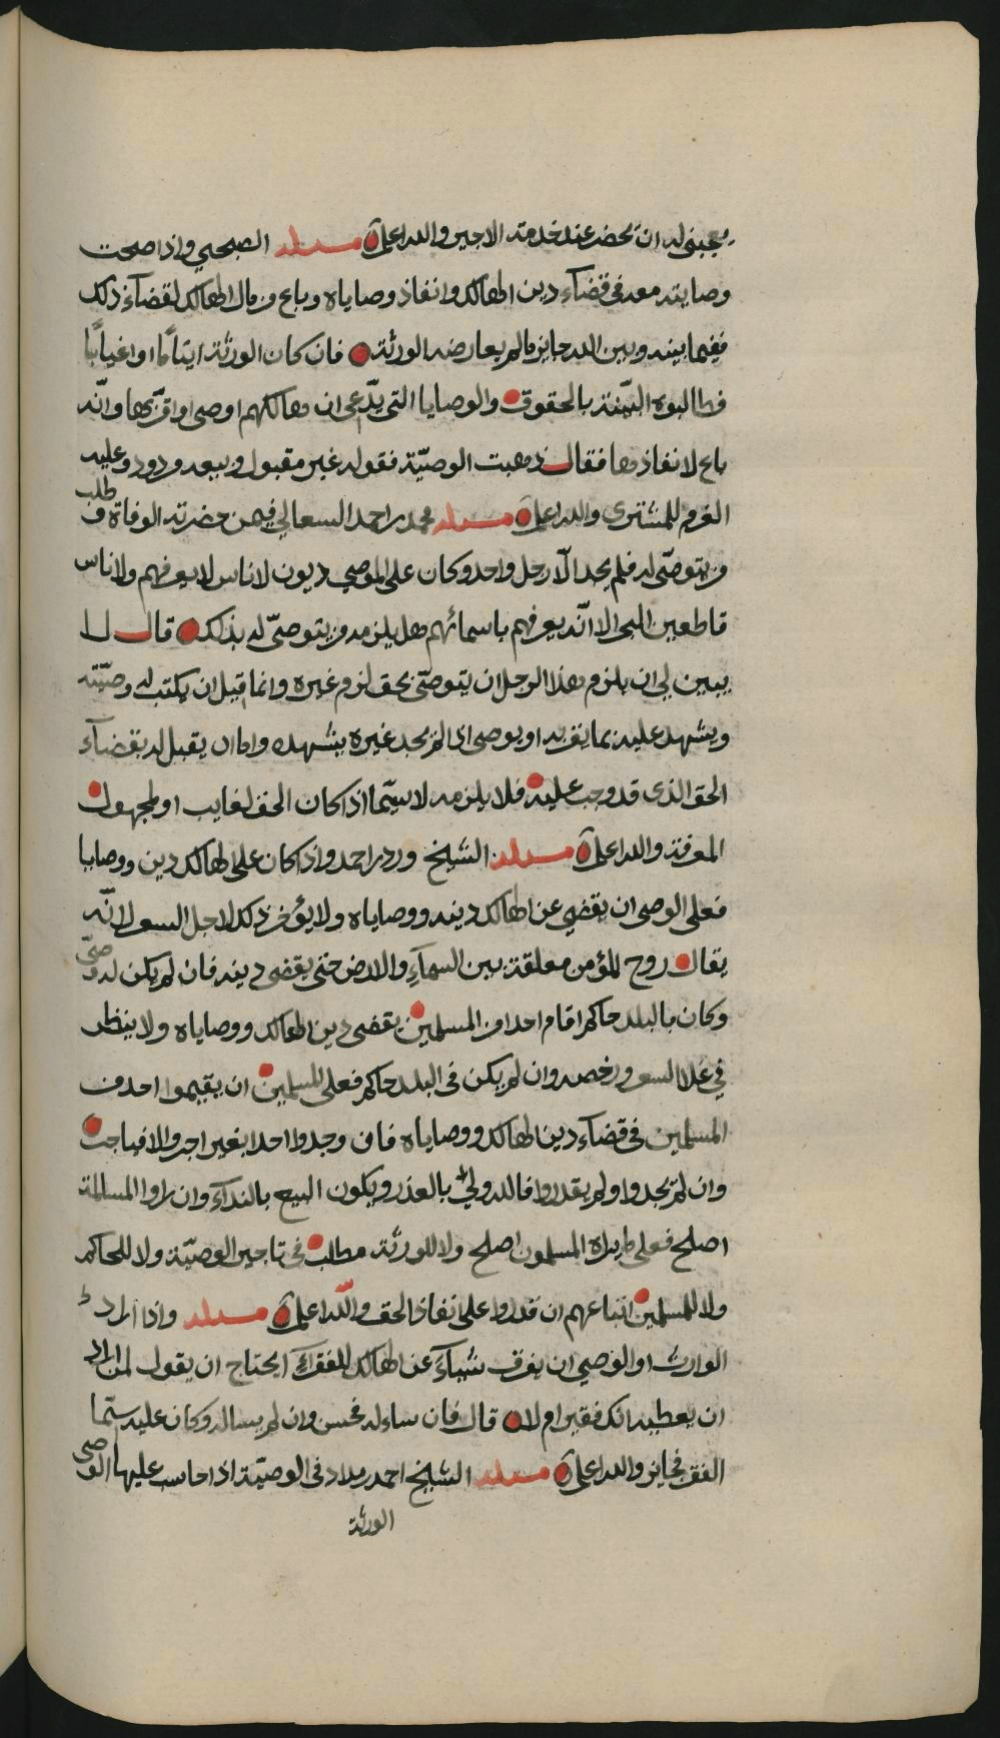 يعجبني له ان يحضر عند خدمة الاجير والله اعلم مسئلة الصبحي واذا صحت
وصايته معه في قضآء دين الهالك وانفاذ وصاياه وباع من مال الهالك لقضآء ذلك
ففيما بينه وبين الله جايز مالم يعارضه الورثة فان كان الورثة ايتامًا او اغيابًا
فطالبوه البيّنة بالحقوق والوصايا التي يدّعي ان هالكهم اوصى او اقرّ بها وانّه
باع لانفاذها فقال ذهبت الوصيّة فقوله غير مقبول وبيعه مردود وعليه
الغرم للمشتري والله اعلم مسئلة محمد بن احمد السعالي فيمن حضرته الوفاة وطلب
من يتوصّى له فلم يجد الّا رجل واحد وكان على الموصي ديون لاناس لا يعرفهم ولاناس
قاطعين البحر الا انّه يعرفهم باسمائهم هل يلزمه من يتوصّى له بذلك قال لا
يبين لي ان يلزم هذا الرجل ان يتوصّى بحق لزم غيره وانما قيل ان يكتب له وصيّته
ويشهد عليه بما يقر به او يوصي اذا لم يجد غيره يشهده واما ان يقبل له بقضآء
الحق الذي قد وجب عليه فلا يلزمه لا سيّما اذا كان الحق لغايب او لمجهول
المعرفة والله اعلم مسئلة الشيخ ورد بن احمد واذا كان على الهالك دين ووصايا
فعلى الوصي ان يقضي عن الهالك دينه ووصاياه ولا يؤخر ذلك لاجل السعر لانّه
يقال روح المؤمن معلقة بين السمآء والارض حتى يقضى دينه فان لم يكن له وصيّ
وكان بالبلد حاكم اقام احدا من المسلمين يقضي دين الهالك ووصاياه ولا ينظر
في غلا السعر ورخصه وان لم يكن في البلد حاكم فعلى المسلمين ان يقيموا احد من
المسلمين في قضآء دين الهالك ووصاياه فان وجدوا احدا بغير اجر والا فباجر
وان لم يجدوا ولم يقدروا فالله اولى بالعذر ويكون البيع بالندآء وان راوا المساومة
اصلح فعلى ما يراه المسلمون اصلح ولا للورثة مطلب في تاخير الوصيّة ولا للحاكم
ولا للمسلمين اتباعهم ان قدروا على انفاذ الحق والله اعلم مسئلة واذا اراد
الوارث او الوصي ان يفرق شيئآ عن الهالك للفقرآء ايحتاج ان يقول لمن اراد
ان يعطيه انك فقير ام لا قال فان ساءله فحسن وان لم يساله وكان عليه سيّما
الفقر فجايز والله اعلم مسئلة الشيخ احمد بن مداد في الوصيّة اذا حاسب عليها الوصي
الورثة